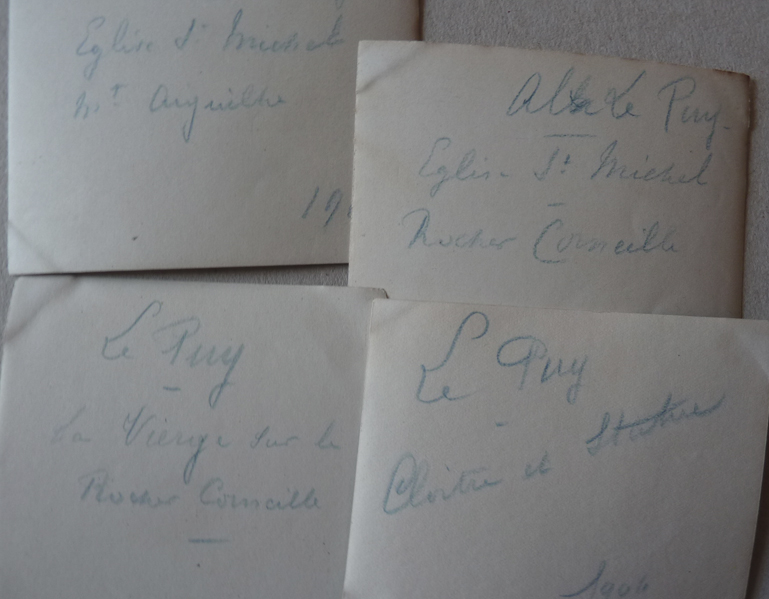 Eglise St Michel
Mt Aiguilhe
19
Le Puy.
Eglise St Michel
Rocher Corneille
Le Puy
La Vierge sur le
Rocher Corneille
Le Puy
Cloitre et Statue
1906